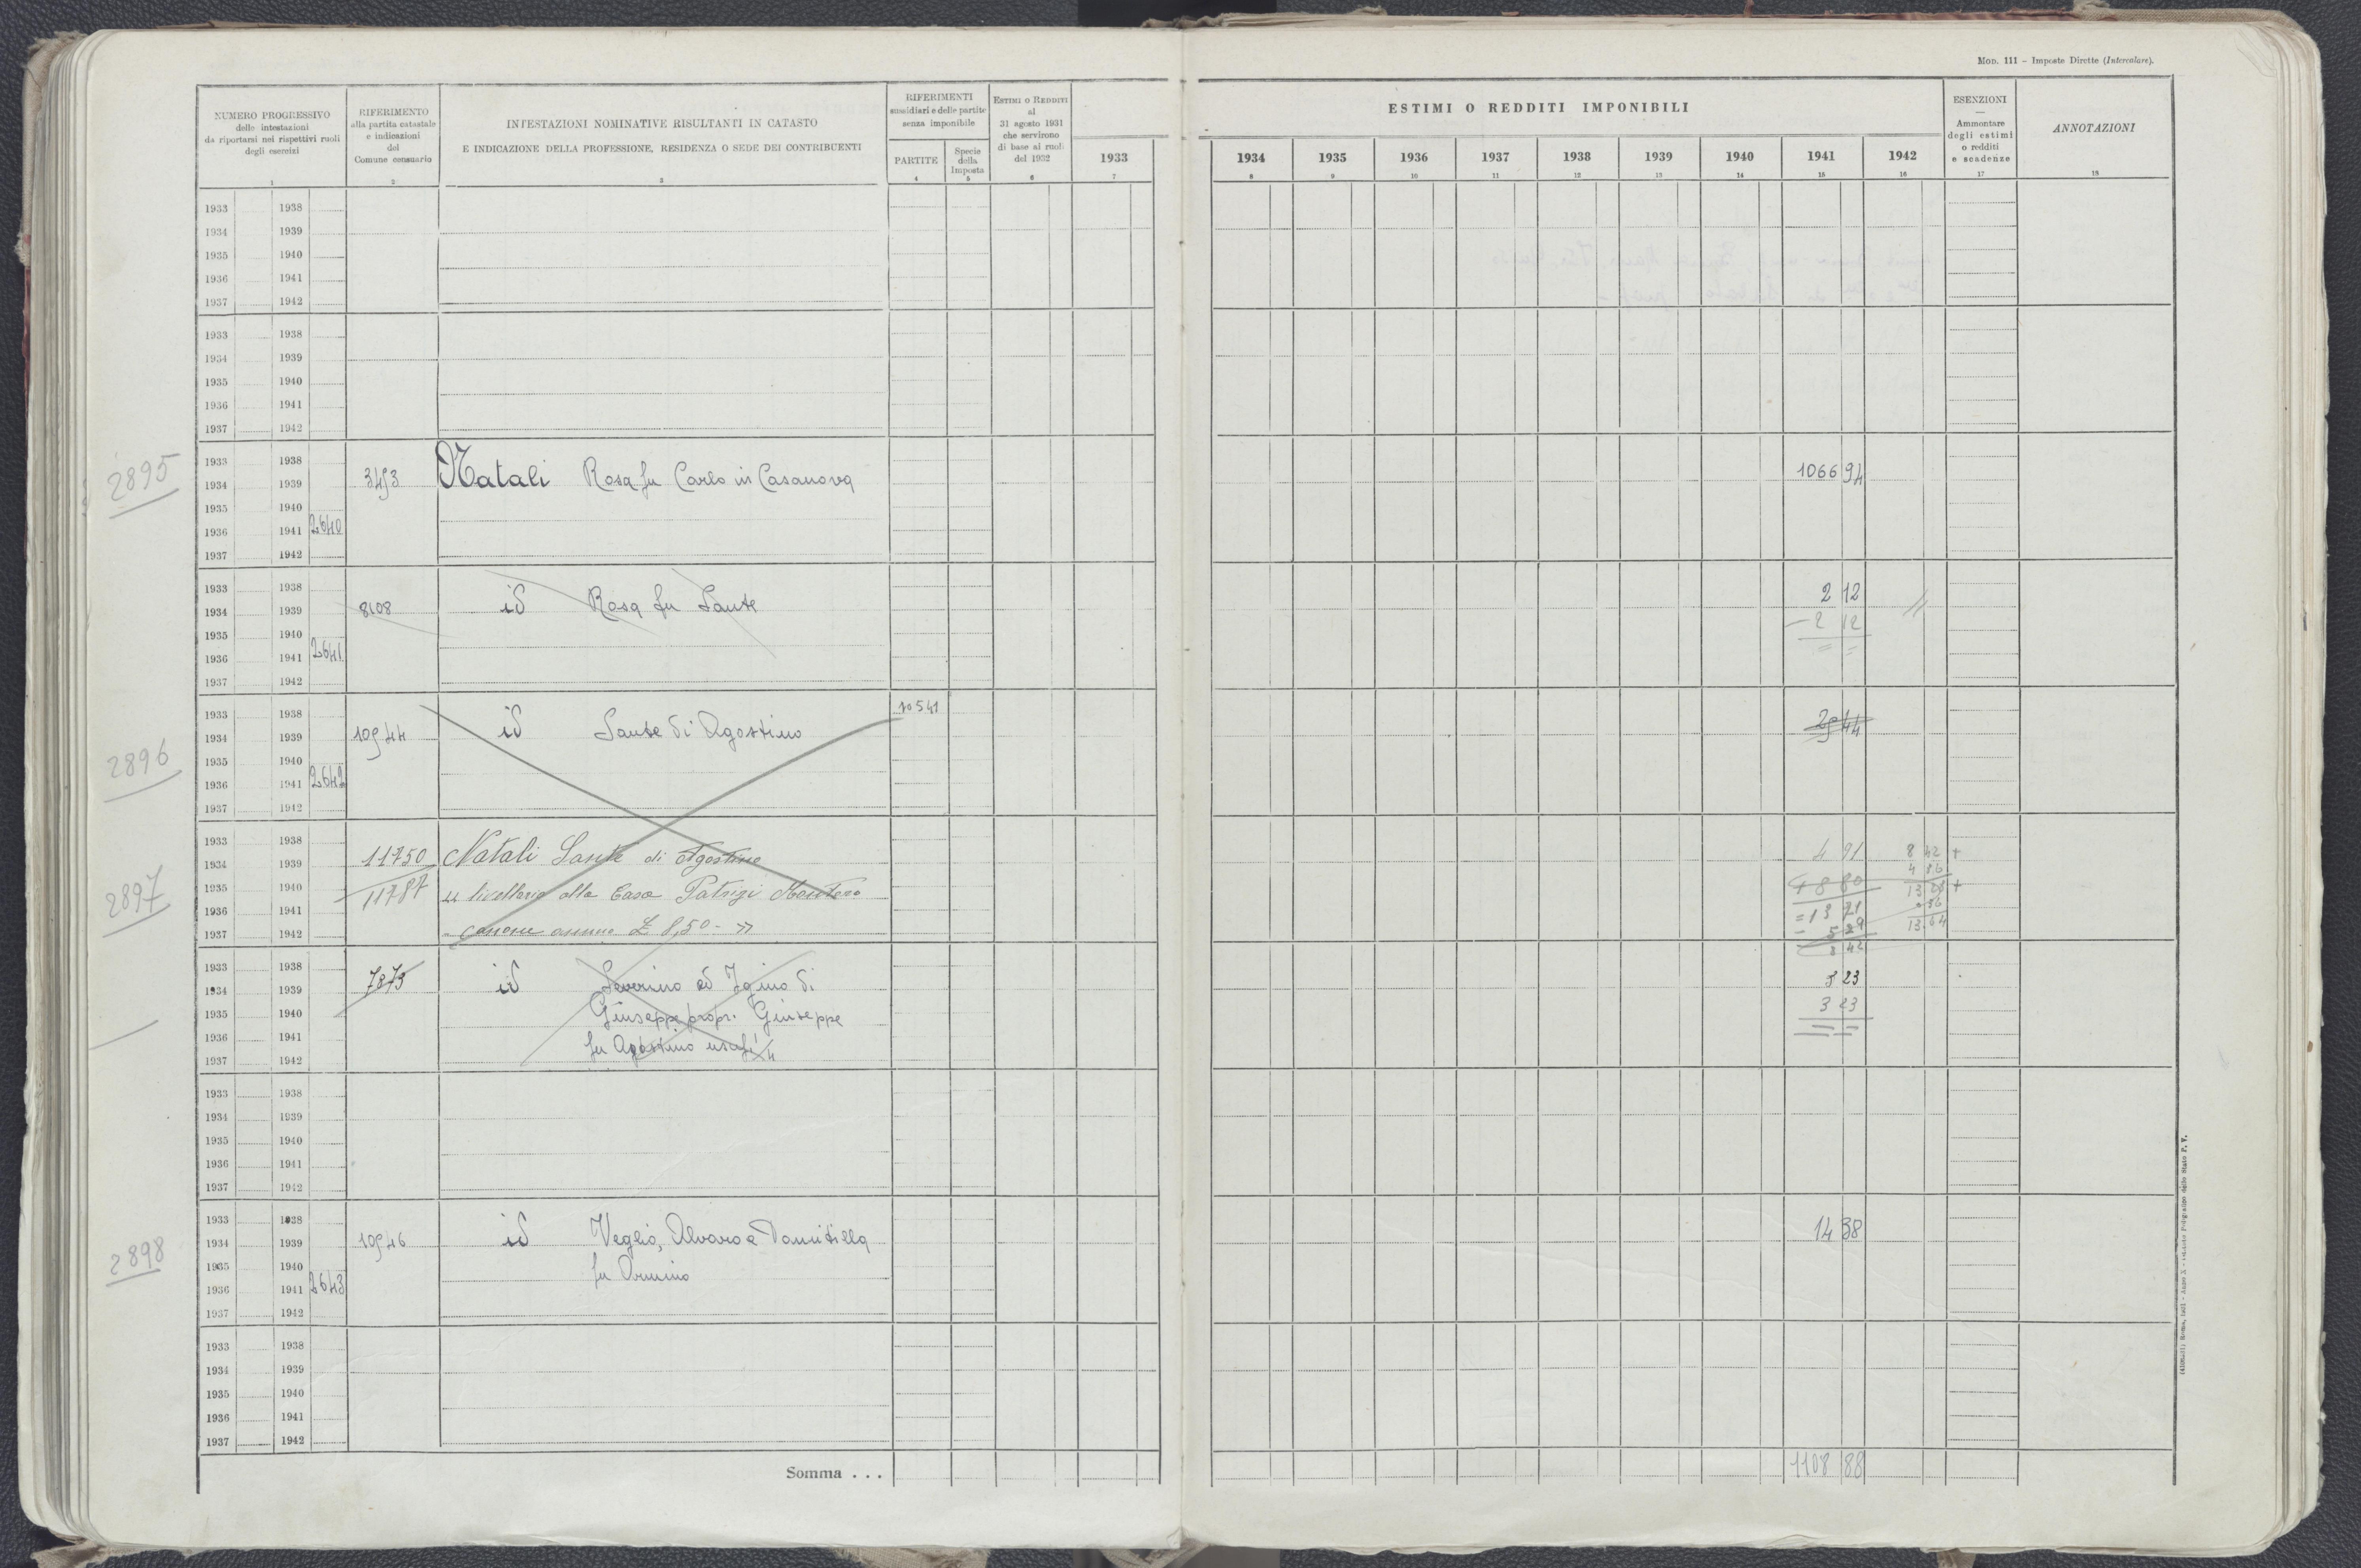 Mod. 111 - Imposte Dirette (Intercalare).
NUMERO PROGRESSIVO
delle intestazioni
da riportarsi nei rispettivi ruoli
degli esercizi
1
RIFERIMENTO
alla partita catastale
e indicazioni
del
Comune censuario
2
INTESTAZIONI NOMINATIVE RISULTANTI IN CATASTO
E INDICAZIONE DELLA PROFESSIONE, RESIDENZA O SEDE DEI CONTRIBUENTI
3
RIFERIMENTI
sussidiari e delle partite
senza imponibile
PARTITE
4
Specie
della
Imposta
5
ESTIMI O REDDITI
al
31 agosto 1931
che servirono
di base ai ruoli
del 1932
6
1933
7
ESTIMI O REDDITI IMPONIBILI
1934 1935 1936 1937 1938 1939 1940 1941 1942
8 9 10 11 12 13 14 15 16
ESENZIONI
—
Ammontare
degli estimi
o redditi
e scadenze
17
ANNOTAZIONI
18
1933 1938
1934 1939
1935 1940
1936 1941
1937 1942
1933 1938
1934 1939
1935 1940
1936 1941
1937 1942
2895
1933 1938
1934 1939 Natali Rosa fu Carlo in Casanova 1066 94
1935 1940
1936 1941 2640
1937 1942
1933 1938 2 12
1934 1939 8108 id Rosa fu Sante //
1935 1940 - 2 12
1936 1941 2641 = =
1937 1942
1933 1938 10541
1934 1939 10944 id Sante di Agostino 29 44
2896
1935 1940
1936 1941 2642
1937 1942
1933 1938
1934 1939 11750 Natali Sante di Agostino 4 91 8 42 +
4 86
2897
1935 1940 11787 livellario alla Casa Patrizi Montoro + 8 80 13 28 +
1936 1941 = 13 71 36
1937 1942 - canone annuo £ 8,50 - » - 5 29 13.64
8 42
1933 1938
1934 1939 7873 id Severino ed Igino di 3 23
1935 1940 Giuseppe propr. Giuseppe 3 23
1936 1941 = =
1937 1942 fu Agostino usuf.
1933 1938
1934 1939
1935 1940
1936 1941
1937 1942
1933 1938
2898
1934 1939 10946 id Veglio, Alvaro e Domitilla 14 38
1935 1940 fu Armino
1936 1941 2643
1937 1942
1933 1938
1934 1939
1935 1940
1936 1941
1937 1942
Somma . . . 1108 88